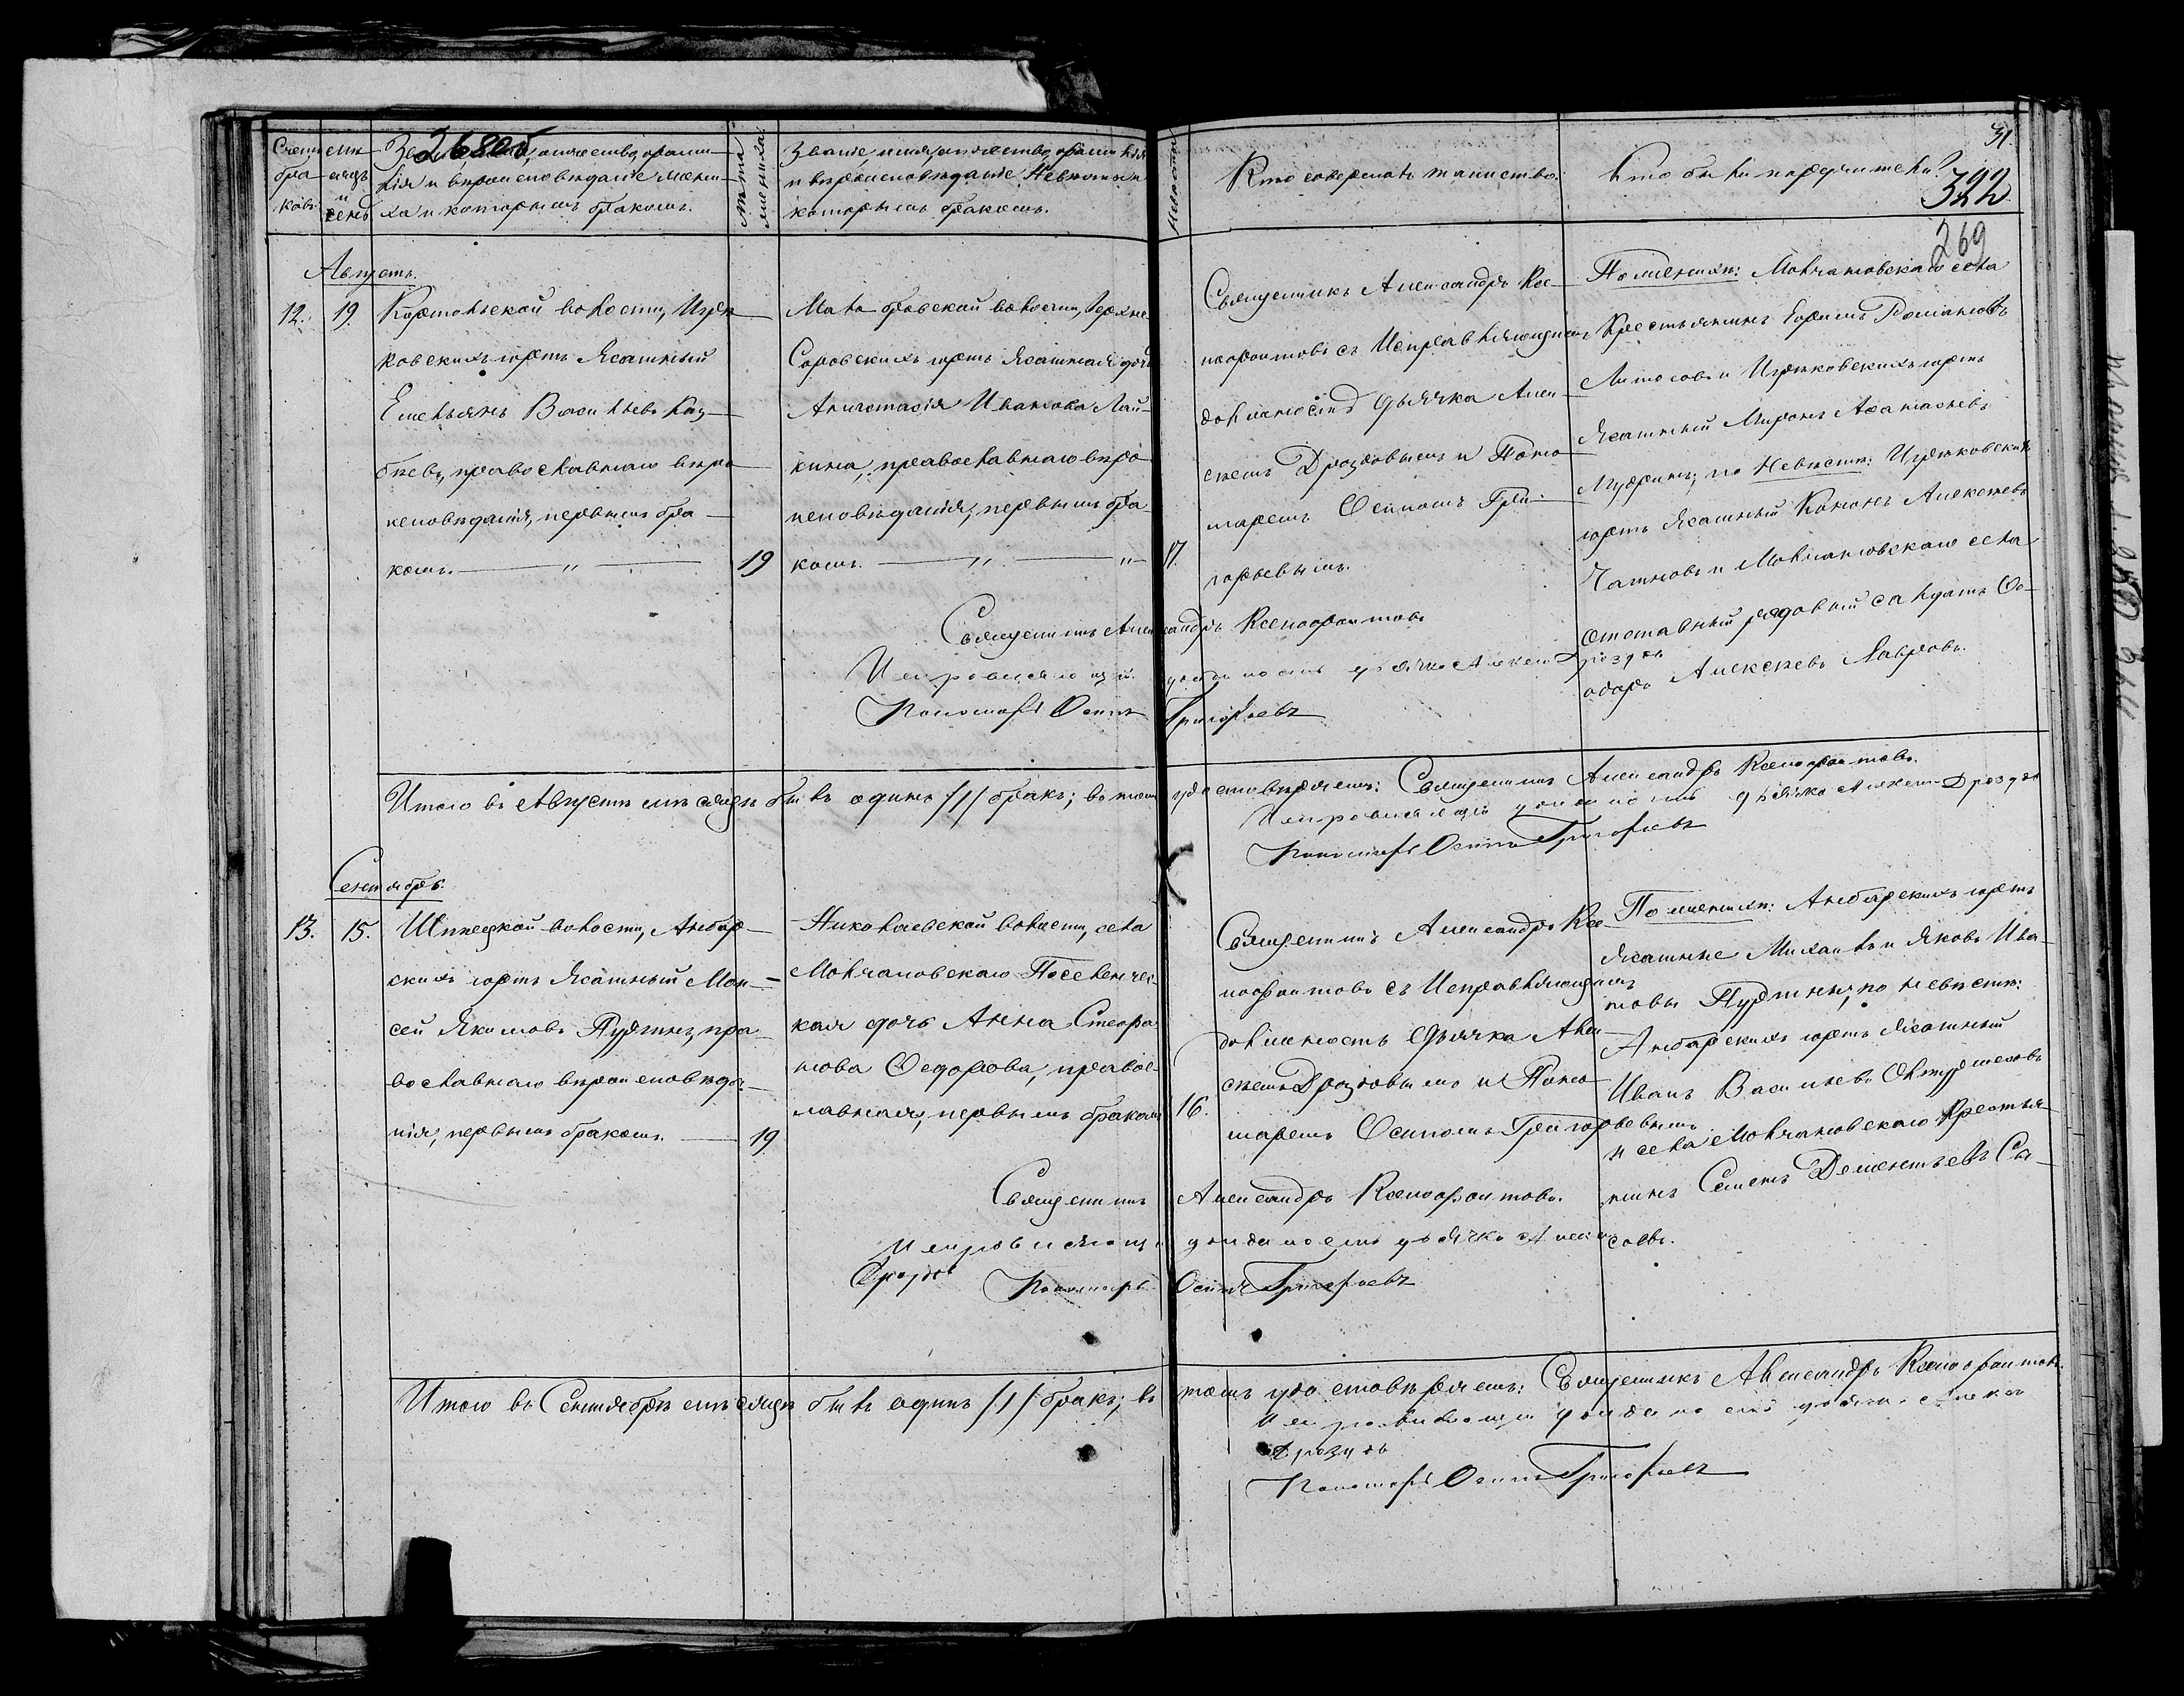 268об
31.
322
269
Счетъ бра ковъ.
мѣ сяцъ и день
Званіе, имя, отчество, фами
лія и вѣроисповѣданіе жени
ха и которымъ бракомъ.
Лѣта жениха.
Званіе, имя, отчество, фамилія
и вѣроисповѣданіе Невѣсты и
которымъ бракомъ.
Невѣсты
Кто совершалъ таинство.
Кто были поручители.
Августъ.
12. 19.
волости,
ковскихъ юртъ Ясашный
Емельянъ Васильевъ
православнаго вѣро
исповѣданія, первымъ бра
комъ. — „ —
19
волости, Верхне
Ясашная дочь
Анастасія Иванова
кина, православнаго вѣро
исповѣданія, первымъ бра
комъ. — „ — „ —
17.
Священникъ Александръ Ксе
нофонтовъ съ Исправляющимъ
должность Дьячка Алек
сѣемъ Дроздовымъ и Поно
маремъ Осипомъ Гри
горьевымъ.
По женихѣ: Молчановскаго села
Крестьянинъ Ефимъ Романовъ
юртъ
Ясашный Миронъ Афанасьевъ
по Невѣстѣ:
юртъ Ясашный Кононъ Алексѣевъ
и Молчановскаго села
отставный рядовый солдатъ Ѳе
одоръ Алексѣевъ Лавровъ.
Священникъ Александръ Ксенофонтовъ
Исправляющій должность дьячка Алексѣй Дроздовъ
Пономарь Осипъ Григорьевъ
Итого въ Августѣ мѣсяцѣ былъ одинъ /1/ бракъ; въ томъ удостовѣряемъ: Священникъ Александръ Ксенофонтовъ.
Исправляющій должность дьячка Алексѣй Дроздовъ
Пономарь Осипъ Григорьевъ
Сентябрь.
13. 15.
волости, Амбар
скихъ юртъ Ясашный Мои
сей Якимовъ пра
вославнаго вѣроисповѣда
нія, первымъ бракомъ. —
19
Николаевской волости, села
Молчановскаго Поселенчес
кая дочь Анна Стефа
нова Ѳедорова, правос
лавная, первымъ бракомъ
16.
Священникъ Александръ Ксе
нофонтовъ съ Исправляющимъ
должность Дьячка Алек
сѣемъ Дроздовымъ и Поно
маремъ Осипомъ Григорьевымъ
По женихѣ: Амбарскихъ юртъ
Ясашные Михаилъ и Яковъ Ива
новы по невѣстѣ:
Амбарскихъ юртъ Ясашный
Иванъ Васильевъ
и села Молчановскаго Крестья
нинъ Семенъ Дементьевъ Сы
соевъ.
Священникъ Александръ Ксенофонтовъ.
Исправляющій должность дьячка Алексѣй
Дроздовъ
Пономарь Осипъ Григорьевъ
Итого въ Сентябрѣ мѣсяцѣ былъ одинъ /1/ бракъ; въ томъ удостовѣряемъ: Священникъ Александръ Ксенофонтовъ.
Исправляющій должность дьячка Алексѣй
Дроздовъ
Пономарь Осипъ Григорьевъ